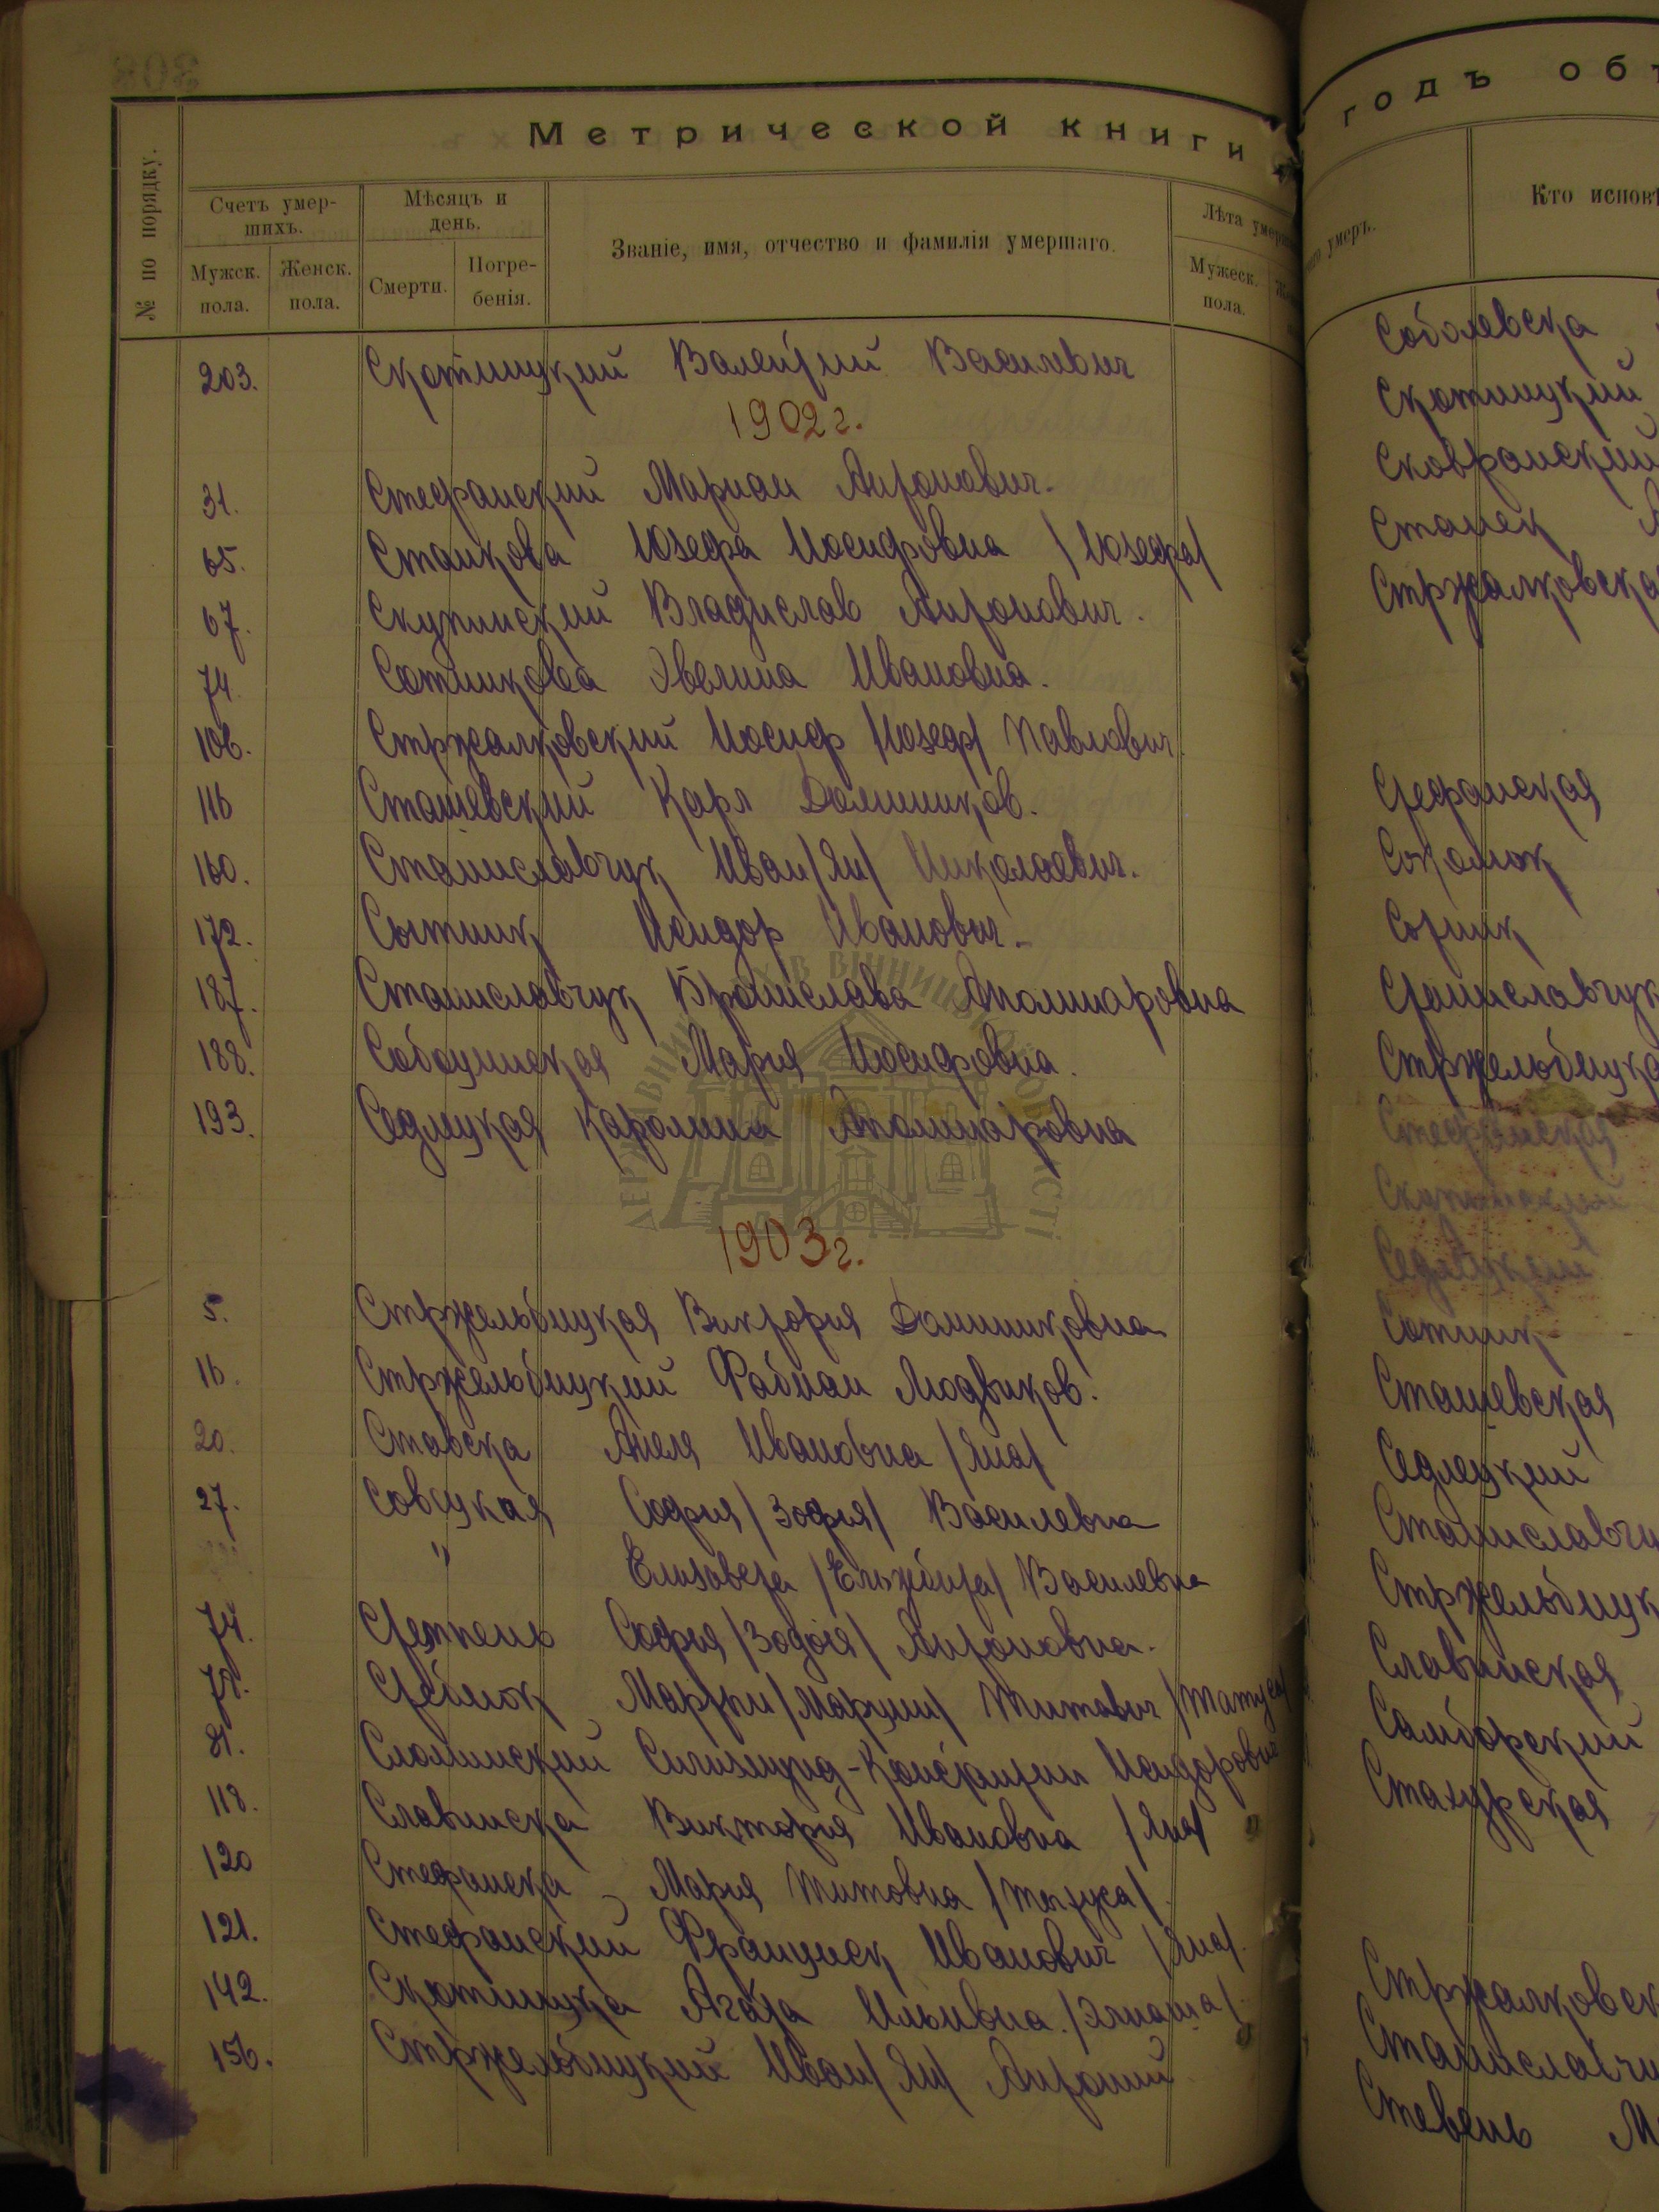 308
Метрической книги
№ по порядку.
Счетъ умер-
шихъ.
Мужск.
пола.
Женск.
пола.
Мѣсяцъ и
день.
Смерти.
Погре-
бенія.
Званіе, имя, отчество и фамилія умершаго.
Лѣта умерш
Мужеск.
пола.
203. Скотницкий Валентий Василевич
1902 г.
31. Стефанский Мариан Антонович.
65. Станкова Юзефа Иосифовна /Юзефа/
67. Скупинский Владислав Антонович.
74. Сотникова Эвелина Ивановна.
106. Стржалковский Иосиф /Юзеф/ Павлович.
116 Сташевский Карл Домиников.
160. Станиславчук Иван /Ян/ Николаевич.
172. Сытник Исидор Иванович.
187. Станиславчук Бронислава Аполинаровна
188. Мария Иосифовна.
193. Седлецкая Каролина Аполинаровна
1903 г.
5. Стржельбицкая Виктория Доминиковна
16. Стржельбицкий Фабиан Людвиков.
20. Ставска Анеля Ивановна /Яна/
27. Совецкая София /Зофия/ Василевна
" Елизавета /Ельжбита/ Василевна
74. София /Зофия/ Антоновна.
Мартин /Марцин/ Титович
81. Слонинский Сигизмунд-Констанции Исидорович
118. Славинска Виктория Ивановна /Яна/
120 Стефанска Мария Титовна
121. Стефанский Францишек Иванович /Яна/.
142. Скотницка Агата /Элиаша/.
156. Стржельбицкий Иван /Ян/ Антоний
годъ объ
умеръ.
Кто исповѣ
Соболевска
Скотницкий
Сковронский
Станек
Стржалковска
Стефанская
Сотник
Станиславчук
Стржельбицка
Стефанская
Сотник
Сташевская
Седлецкий
Станиславчу
Стржельбицк
Славинская
Самборский
Стахурская
Стржалковск
Станиславчу
Стевень М